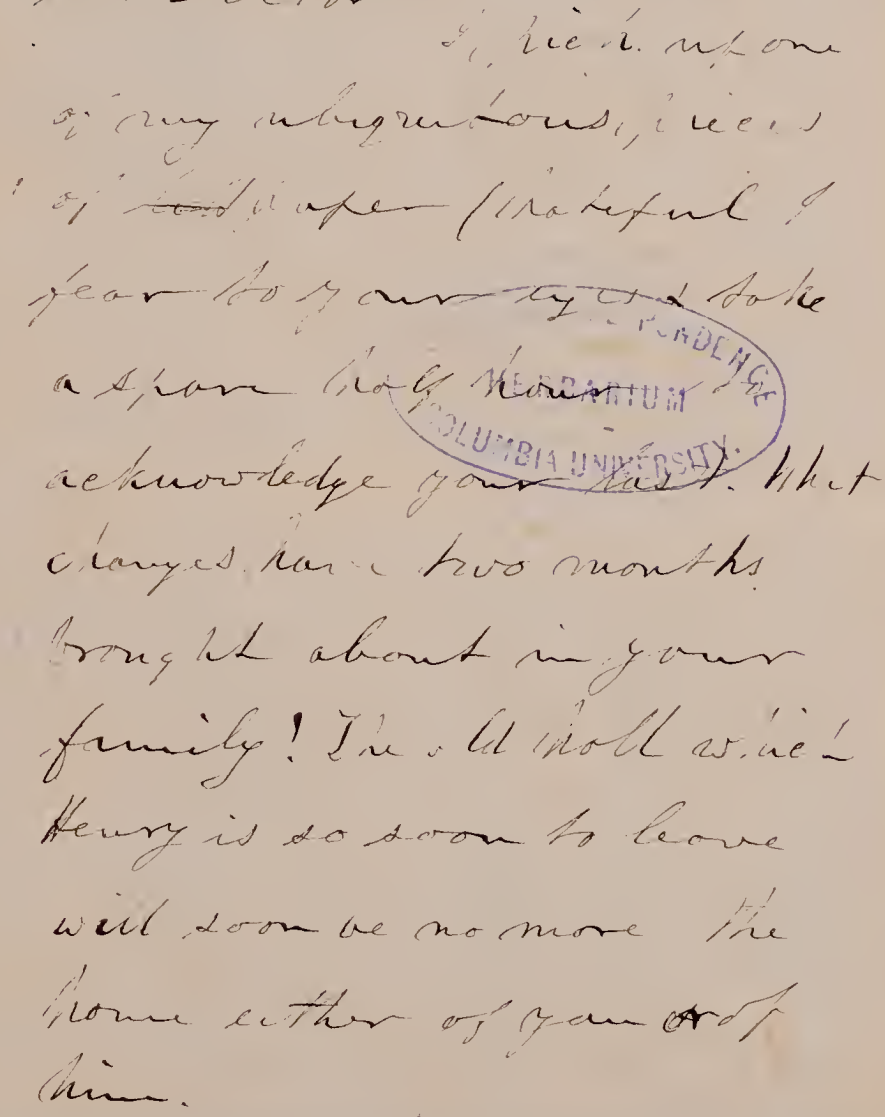 I pick up one
of my ubiquitous pieces
of paper (hateful I
fear to your eyes & take
a spare half hour to
acknowledge your last. What
changes have two months
brought about in your
family! The old Hall which
Henry is so soon to leave
will soon be no more the
home either of you or of
him.
HERBARIUM
COLUMBIA UNIVERSITY.